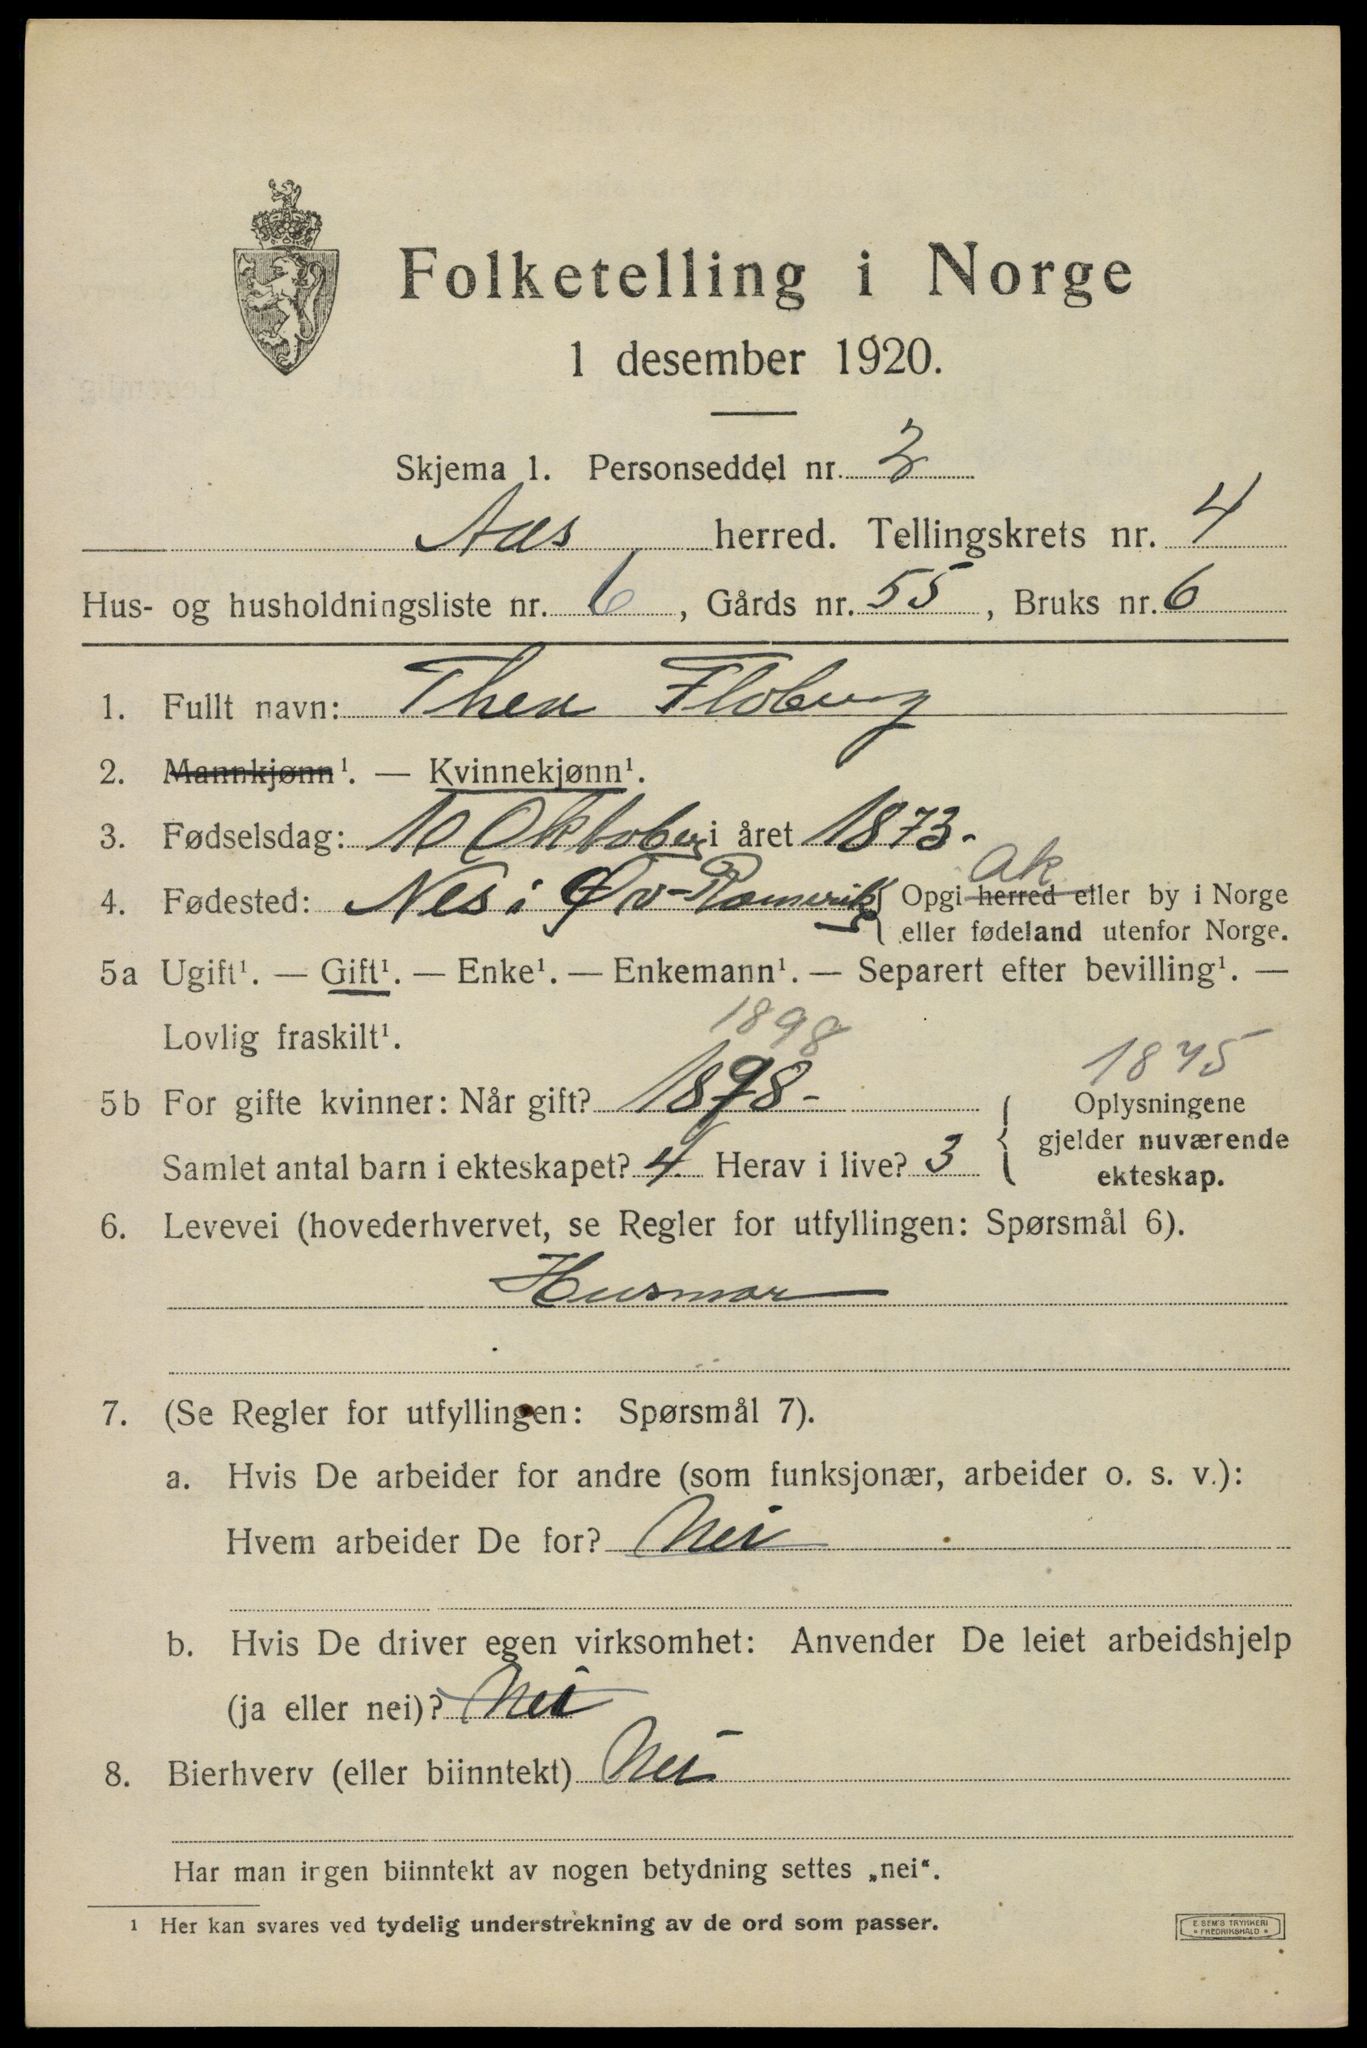 Folketelling i Norge
1 desember 1920.
Skjema 1. Personseddel nr. 2
Aas herred. Tellingskrets nr. 4
Hus- og husholdningsliste nr. 6, Gårds nr. 55, Bruks nr. 6
1. Fullt navn: Thea Floberg
2. Mannkjønn¹. — Kvinnekjønn¹.
3. Fødselsdag: 10 Oktober i året 1873.
Ak
4. Fødested: Nes i Øv-Romerike { Opgi herred eller by i Norge
eller fødeland utenfor Norge.
5a Ugift¹. — Gift¹. — Enke¹. — Enkemann¹. — Separert efter bevilling¹. —
Lovlig fraskilt¹.
1898
1875
5b For gifte kvinner: Når gift? 1898- { Oplysningene
gjelder nuværende
Samlet antal barn i ekteskapet? 4 Herav i live? 3
ekteskap.
6. Levevei (hovederhvervet, se Regler for utfyllingen: Spørsmål 6).
Husmor
7. (Se Regler for utfyllingen: Spørsmål 7).
a. Hvis De arbeider for andre (som funksjonær, arbeider o. s. v.):
Hvem arbeider De for? Nei
b. Hvis De driver egen virksomhet: Anvender De leiet arbeidshjelp
(ja eller nei)? Nei
8. Bierhverv (eller biinntekt) Nei
Har man ingen biinntekt av nogen betydning settes „nei“.
¹ Her kan svares ved tydelig understrekning av de ord som passer.
E. SEM'S TRYKKERI
* FREDRIKSHALD *